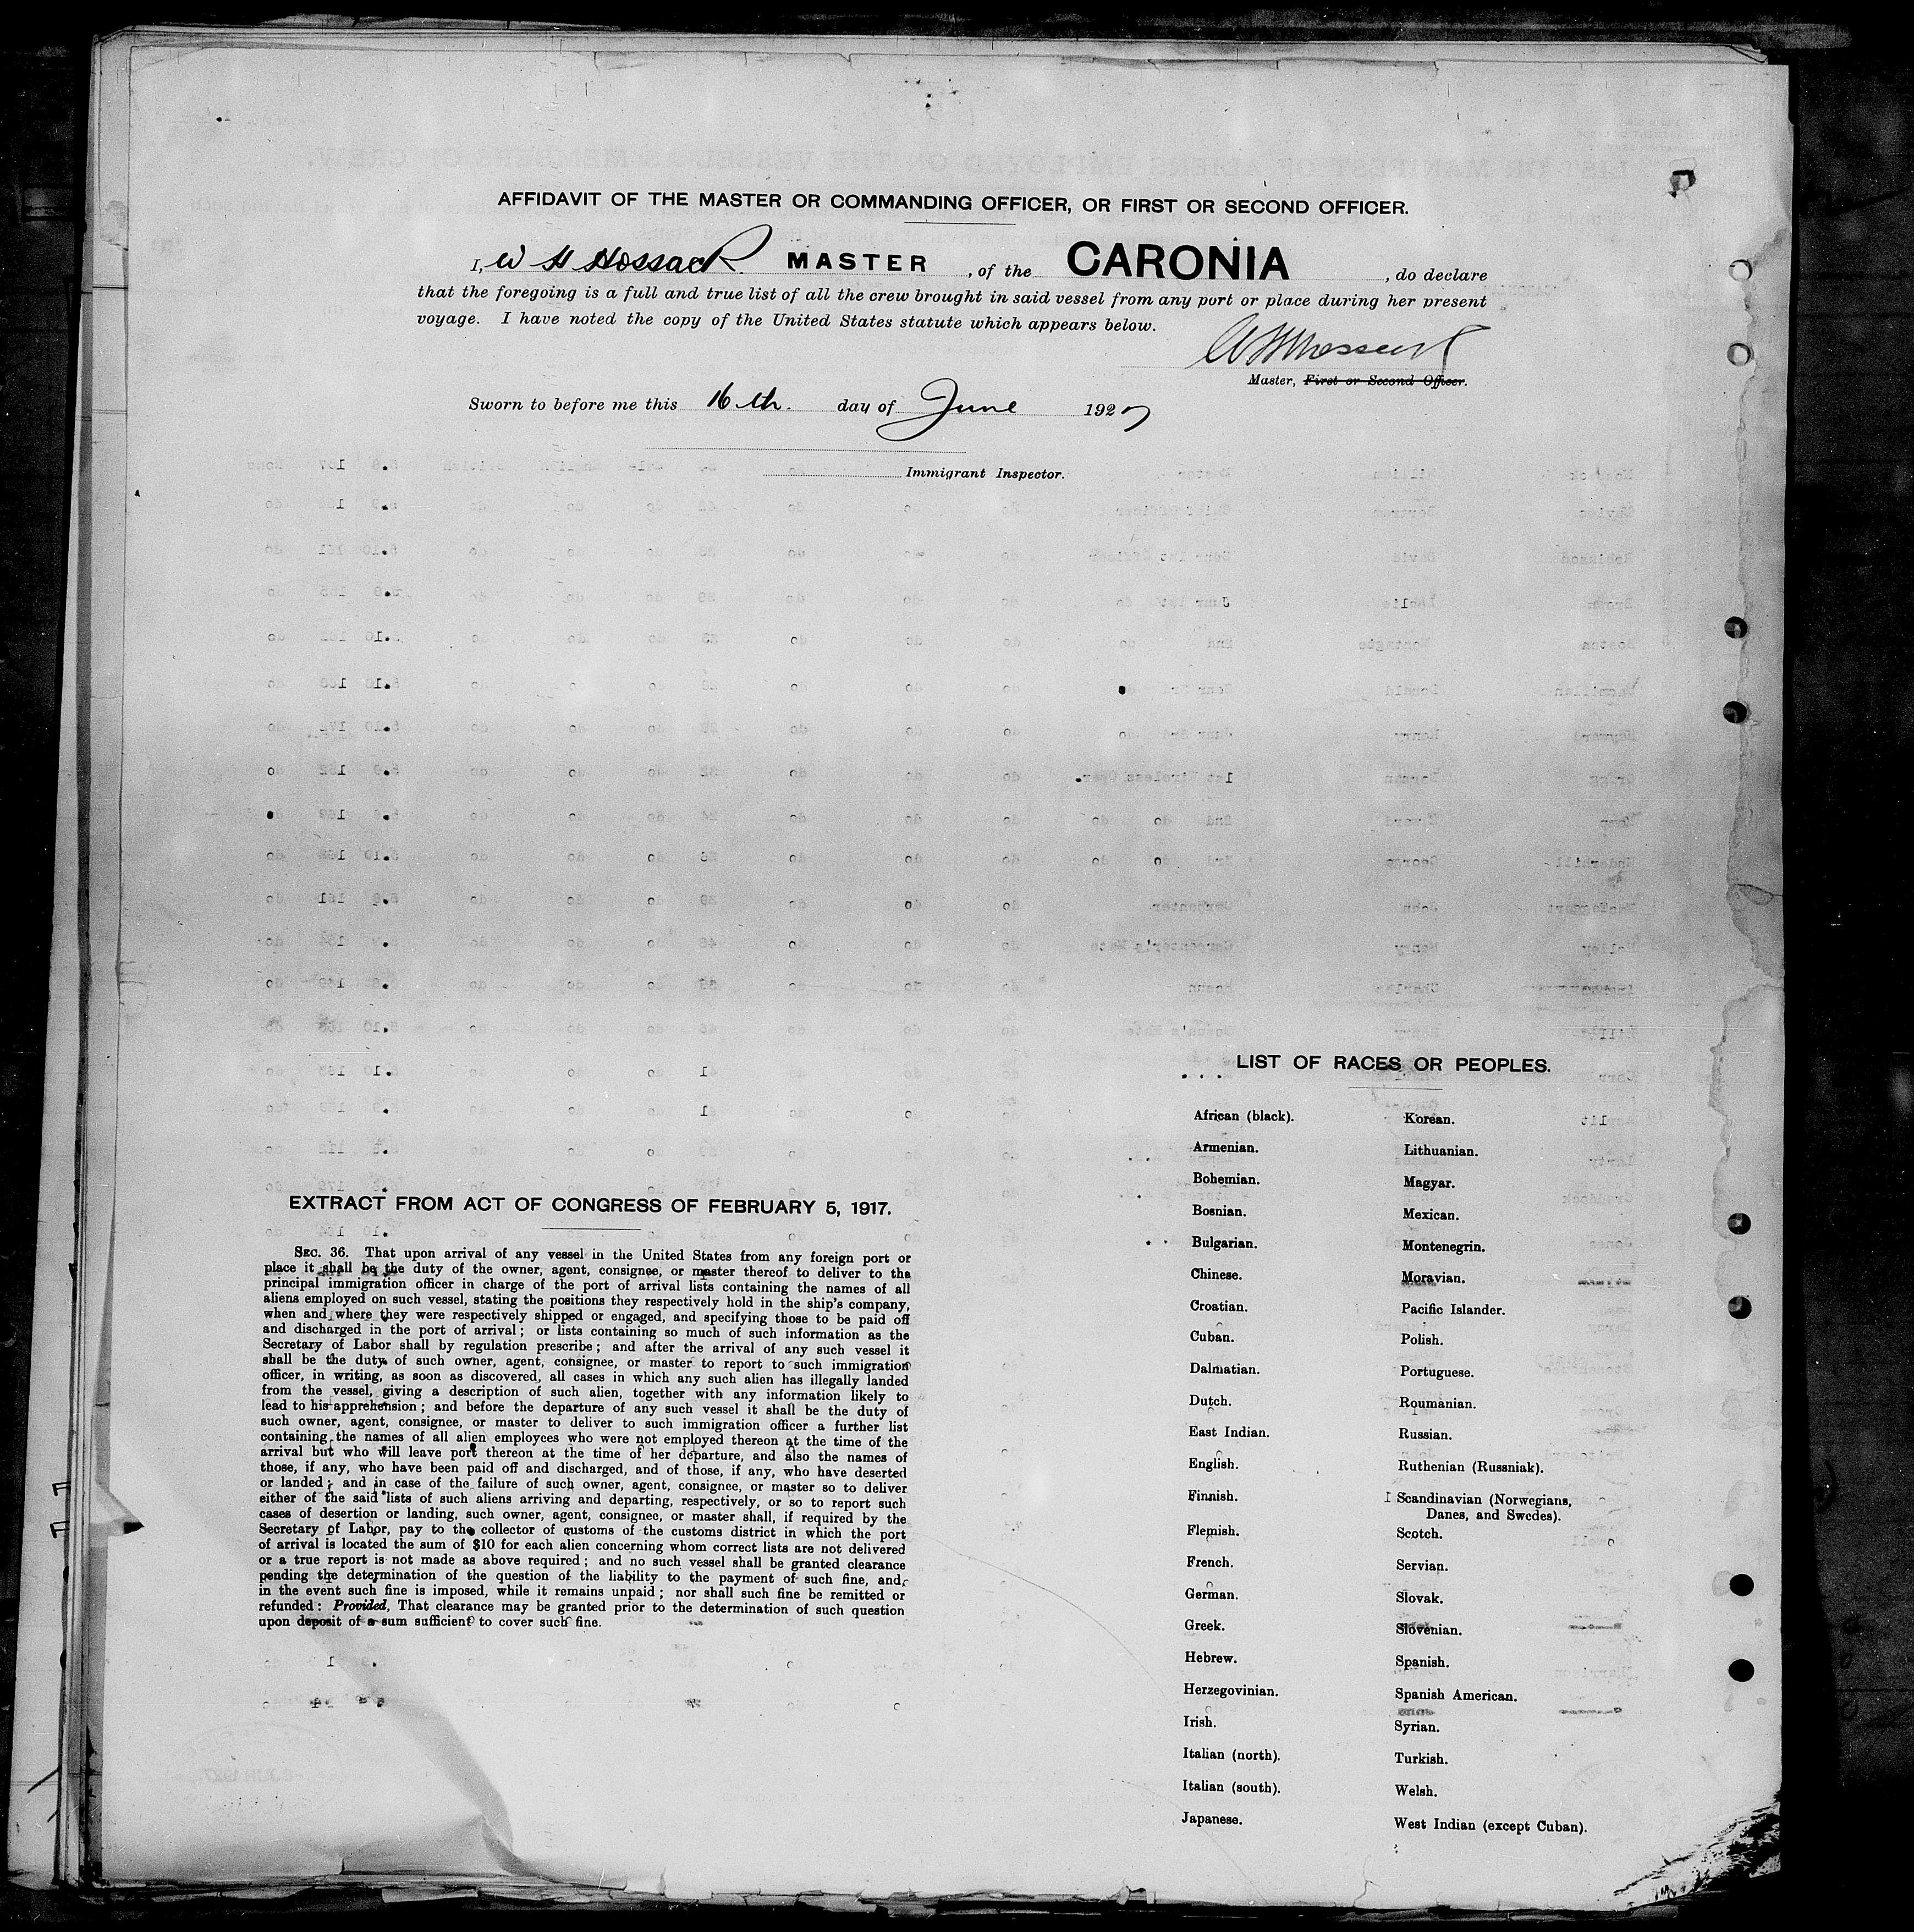 AFFIDAVIT OF THE MASTER OR COMMANDING OFFICER, OR FIRST OR SECOND OFFICER.
I, W H Hossack MASTER, of the CARONIA, do declare
that the foregoing is a full and true list of all the crew brought in said vessel from any port or place during her present
voyage. I have noted the copy of the United States statute which appears below.
W H Hossack
Master, First or Second Officer.
Sworn to before me this 16th. day of June 1927
Immigrant Inspector.
LIST OF RACES OR PEOPLES.
African (black). Korean.
Armenian. Lithuanian.
Bohemian. Magyar.
Bosnian. Mexican.
Bulgarian. Montenegrin.
Chinese. Moravian.
Croatian. Pacific Islander.
Cuban. Polish.
Dalmatian. Portuguese.
Dutch. Roumanian.
East Indian. Russian.
English. Ruthenian (Russniak).
Finnish. Scandinavian (Norwegians,
Danes, and Swedes).
Flemish. Scotch.
French. Servian.
German. Slovak.
Greek. Slovenian.
Hebrew. Spanish.
Herzegovinian. Spanish American.
Irish. Syrian.
Italian (north). Turkish.
Italian (south). Welsh.
Japanese. West Indian (except Cuban).
EXTRACT FROM ACT OF CONGRESS OF FEBRUARY 5, 1917.
SEC. 36. That upon arrival of any vessel in the United States from any foreign port or
place it shall be the duty of the owner, agent, consignee, or master thereof to deliver to the
principal immigration officer in charge of the port of arrival lists containing the names of all
aliens employed on such vessel, stating the positions they respectively hold in the ship's company,
when and where they were respectively shipped or engaged, and specifying those to be paid off
and discharged in the port of arrival; or lists containing so much of such information as the
Secretary of Labor shall by regulation prescribe; and after the arrival of any such vessel it
shall be the duty of such owner, agent, consignee, or master to report to such immigration
officer, in writing, as soon as discovered, all cases in which any such alien has illegally landed
from the vessel, giving a description of such alien, together with any information likely to
lead to his apprehension; and before the departure of any such vessel it shall be the duty of
such owner, agent, consignee, or master to deliver to such immigration officer a further list
containing the names of all alien employees who were not employed thereon at the time of the
arrival but who will leave port thereon at the time of her departure, and also the names of
those, if any, who have been paid off and discharged, and of those, if any, who have deserted
or landed; and in case of the failure of such owner, agent, consignee, or master so to deliver
either of the said lists of such aliens arriving and departing, respectively, or so to report such
cases of desertion or landing, such owner, agent, consignee, or master shall, if required by the
Secretary of Labor, pay to the collector of customs of the customs district in which the port
of arrival is located the sum of $10 for each alien concerning whom correct lists are not delivered
or a true report is not made as above required; and no such vessel shall be granted clearance
pending the determination of the question of the liability to the payment of such fine, and,
in the event such fine is imposed, while it remains unpaid; nor shall such fine be remitted or
refunded: Provided, That clearance may be granted prior to the determination of such question
upon deposit of a sum sufficient to cover such fine.